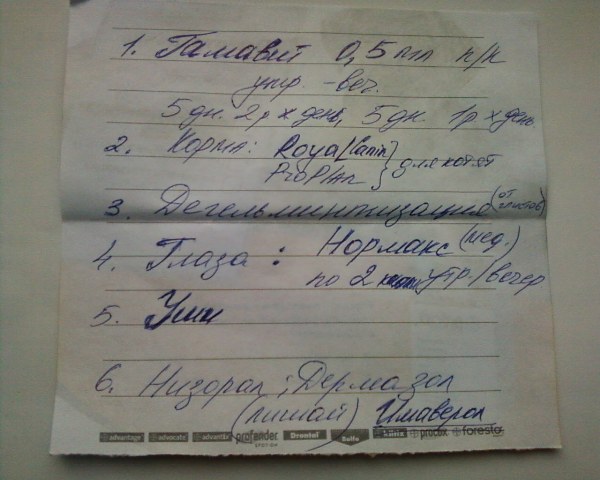 1. Гамавит 0,5 мл п/к
утр. - веч.
5 дн. 2р х день, 5 дн. 1р х день.
2. Корма: Royal Canin
ProPlan } для котят
3. Дегельминтизация (от глистов)
4. Глаза : Нормакс (мед.)
по 2 утр./вечер
5. Уши
6. Низорал ; Дермазол
(лишай) Имаверол
advantage advocate advantix profender Drontal Bolfo foresto